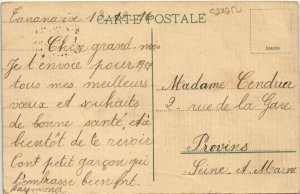 Tananarive 13-12-16
CARTE POSTALE
Chère grand-mère
Je t'envoie pour
tous mes meilleurs
vœux et souhaits
de bonne santé, à
bientôt de te revoir
Ton petit garçon qui
t'embrasse bien fort.
Raymond
Madame Cendrier
2. rue de la Gare
Provins
Seine et Marne